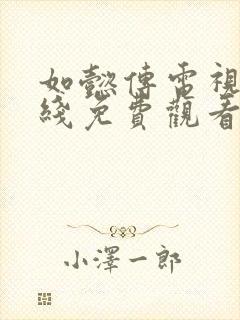 如懿傳電視
綫免費觀看
小澤一郎